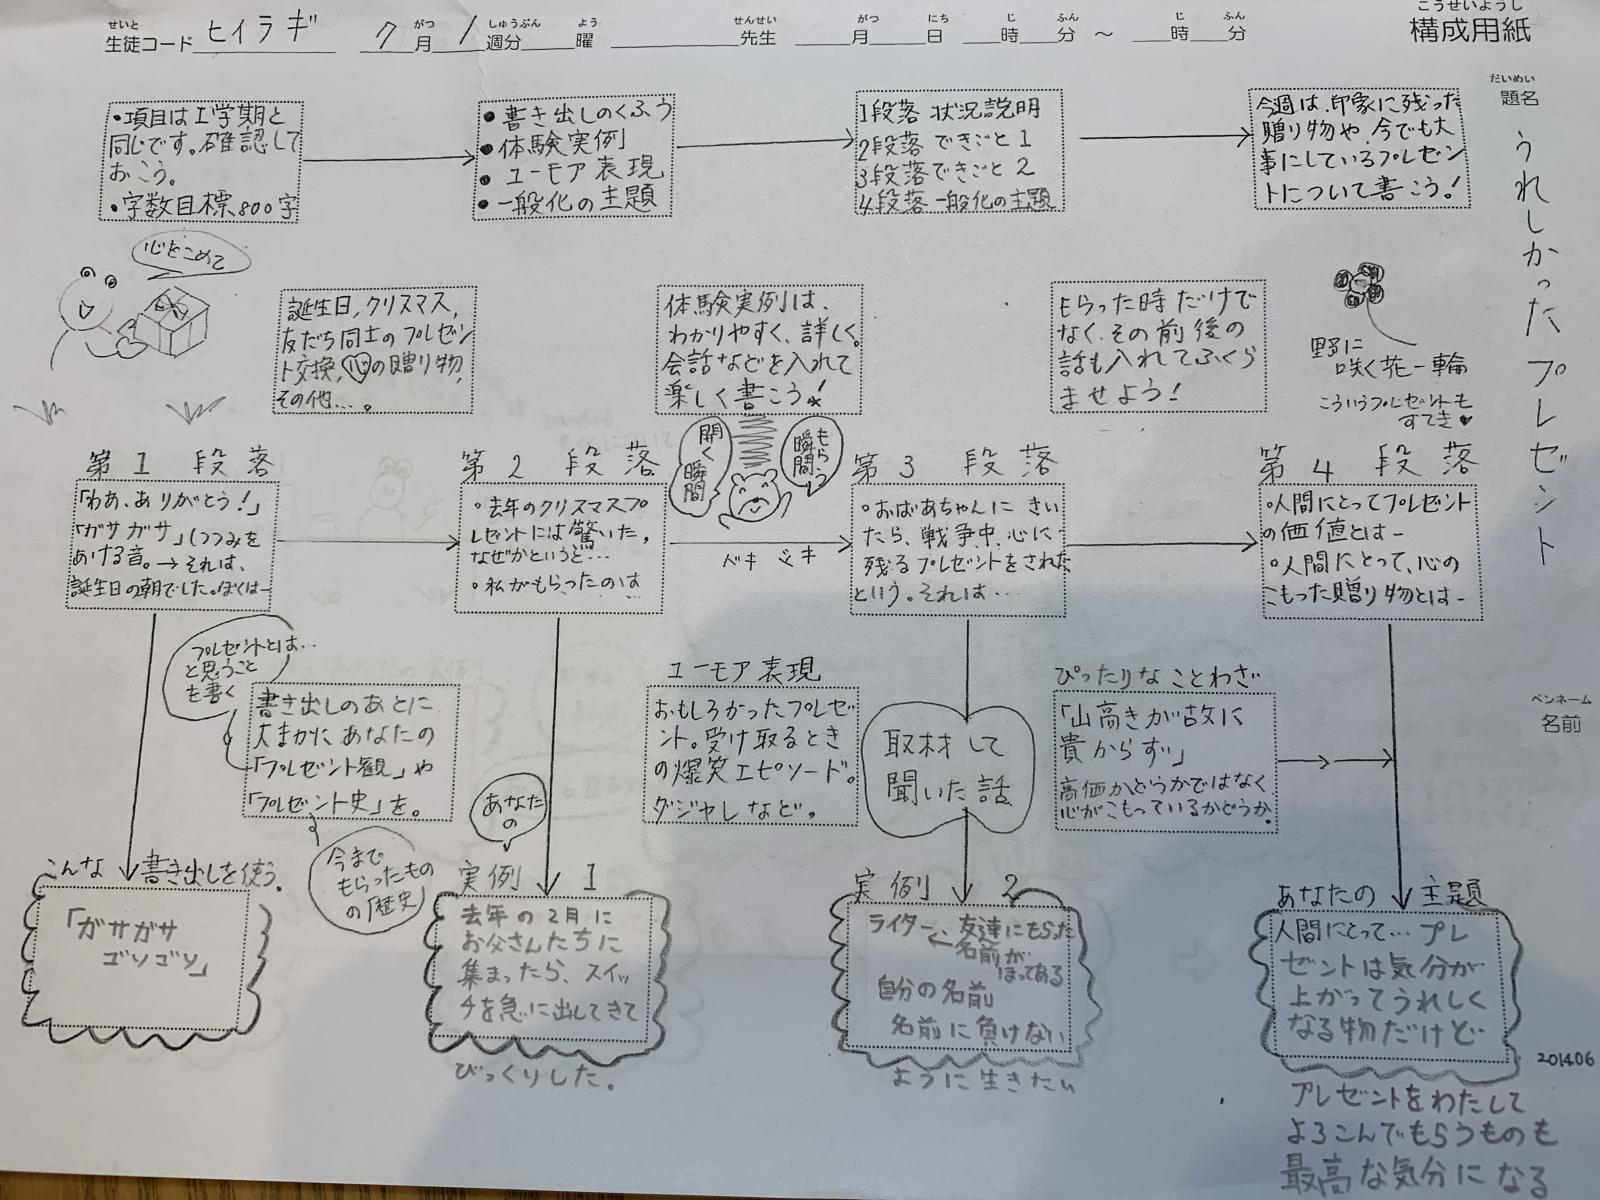 こうせいようし
構成用紙
せいと がつ しゅうぶん よう せんせい がつ にち じ ふん じ ふん
生徒コード ヒイラギ 7月 1週分 曜 先生 月 日 時 分 ～ 時 分
だいめい
題名
うれしかったプレゼント
ペンネーム
名前
・項目は1学期と
同じです。確認して
おこう。
・字数目標800字
●書き出しのくふう
●体験実例
●ユーモア表現
●一般化の主題
1段落 状況説明
2段落 できごと 1
3段落 できごと 2
4段落 一般化の主題
今週は、印象に残った
贈り物や、今でも大
事にしているプレゼン
トについて書こう!
心をこめて
誕生日、クリスマス、
友だち同士のプレゼン
ト交換、心の贈り物、
その他…。
体験実例は、
わかりやすく、詳しく。
会話などを入れて
楽しく書こう!
もらった時だけで
なく、その前後の
話も入れてふくら
ませよう!
野に
咲く花一輪
こういうプレゼントも
すてき♥
第1段落
「わあ、ありがとう!」
「ガサガサ」(つつみを
あける音。→それは、
誕生日の朝でした。ぼくは―
第2段落
・去年のクリスマスプ
レゼントには驚いた。
なぜかというと…
・私がもらったのは
開く瞬間
もらう瞬間
ベキ バキ
第3段落
・おばあちゃんにきい
たら、戦争中、心に
残るプレゼントをされた
という。それは…
第4段落
・人間にとってプレゼント
の価値とは―
・人間にとって、心の
こもった贈り物とは―
プレゼントとは…
と思うこと
を書く
書き出しのあとに
大まかにあなたの
「プレゼント観」や
「プレゼント史」を。
今まで
もらったもの
の「歴史」
ユーモア表現
おもしろかったプレゼ
ント。受け取るとき
の爆笑エピソード。
ダジャレなど。
取材して
聞いた話
ぴったりなことわざ
「山高きが故に
貴からず」
高価かどうかではなく
心がこもっているかどうか。
こんな書き出しを使う。
「ガサガサ
ゴソゴソ」
あなたの
実例 1
去年の2月に
お父さんたちに
集まったら、スイッ
チを急に出してきて
びっくりした。
実例 2
ライター、友達にもらった
←名前が
ほってある
自分の名前
名前に負けない
ように生きたい
あなたの主題
人間にとって…プレ
ゼントは気分が
上がってうれしく
なる物だけど
プレゼントをわたして
よろこんでもらうものも
最高な気分になる
201406